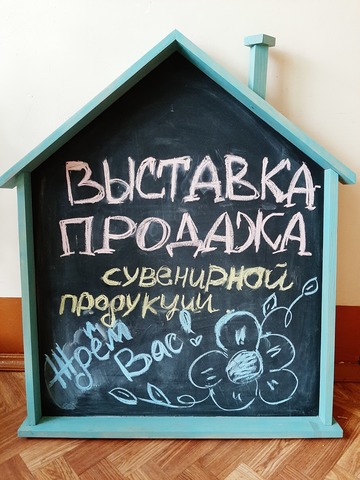 ВЫСТАВКА
ПРОДАЖА
сувенирной
продукции..
Ждём
Вас!